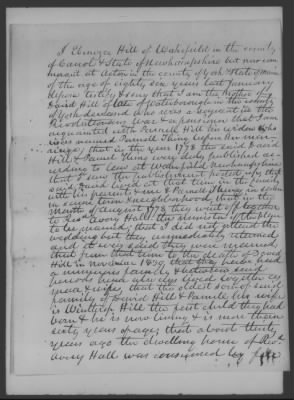 I Ebenezer Hill of Wakefield in the county
of Carrol & State of Newhampshire but now com
morant at Acton in the county of York State of Maine
of the age of eighty six years last January
depose testify & say that I am the Brother of
David Hill late of Waterborough in the county
of York deceased who was a in the
Revolutionary War & a pensioner that I am
acquainted with Parnell Hill his widow who
was named Parnell Thing before her marri
age, that in the year 1778 the said David
Hill & Parnell Thing were duly published ac
cording to law at Wakefield Newhampshire
that I saw the publishment posted up that
said David lived at that time in the family
with his parents & me & Parnell Thing in same
town & neighborhood, that in the
month of August 1778 they went off together
to Revd Avery Hall the minister of the place
to be married, that I did not attend the
wedding but they immediately returned
and it was said they were married,
that from that time to the death of David
Hill in November 1839 that they have had
a numerous family & between said
periods have always lived together as
man & wife, that the oldest son of said
family of David Hill & Parnell his wife
is Winthrop Hill the first child they had
born & he is now living & is more than
sixty years of age, that about thirty
years ago the dwelling house of Revd
Avery Hall was consumed by fire